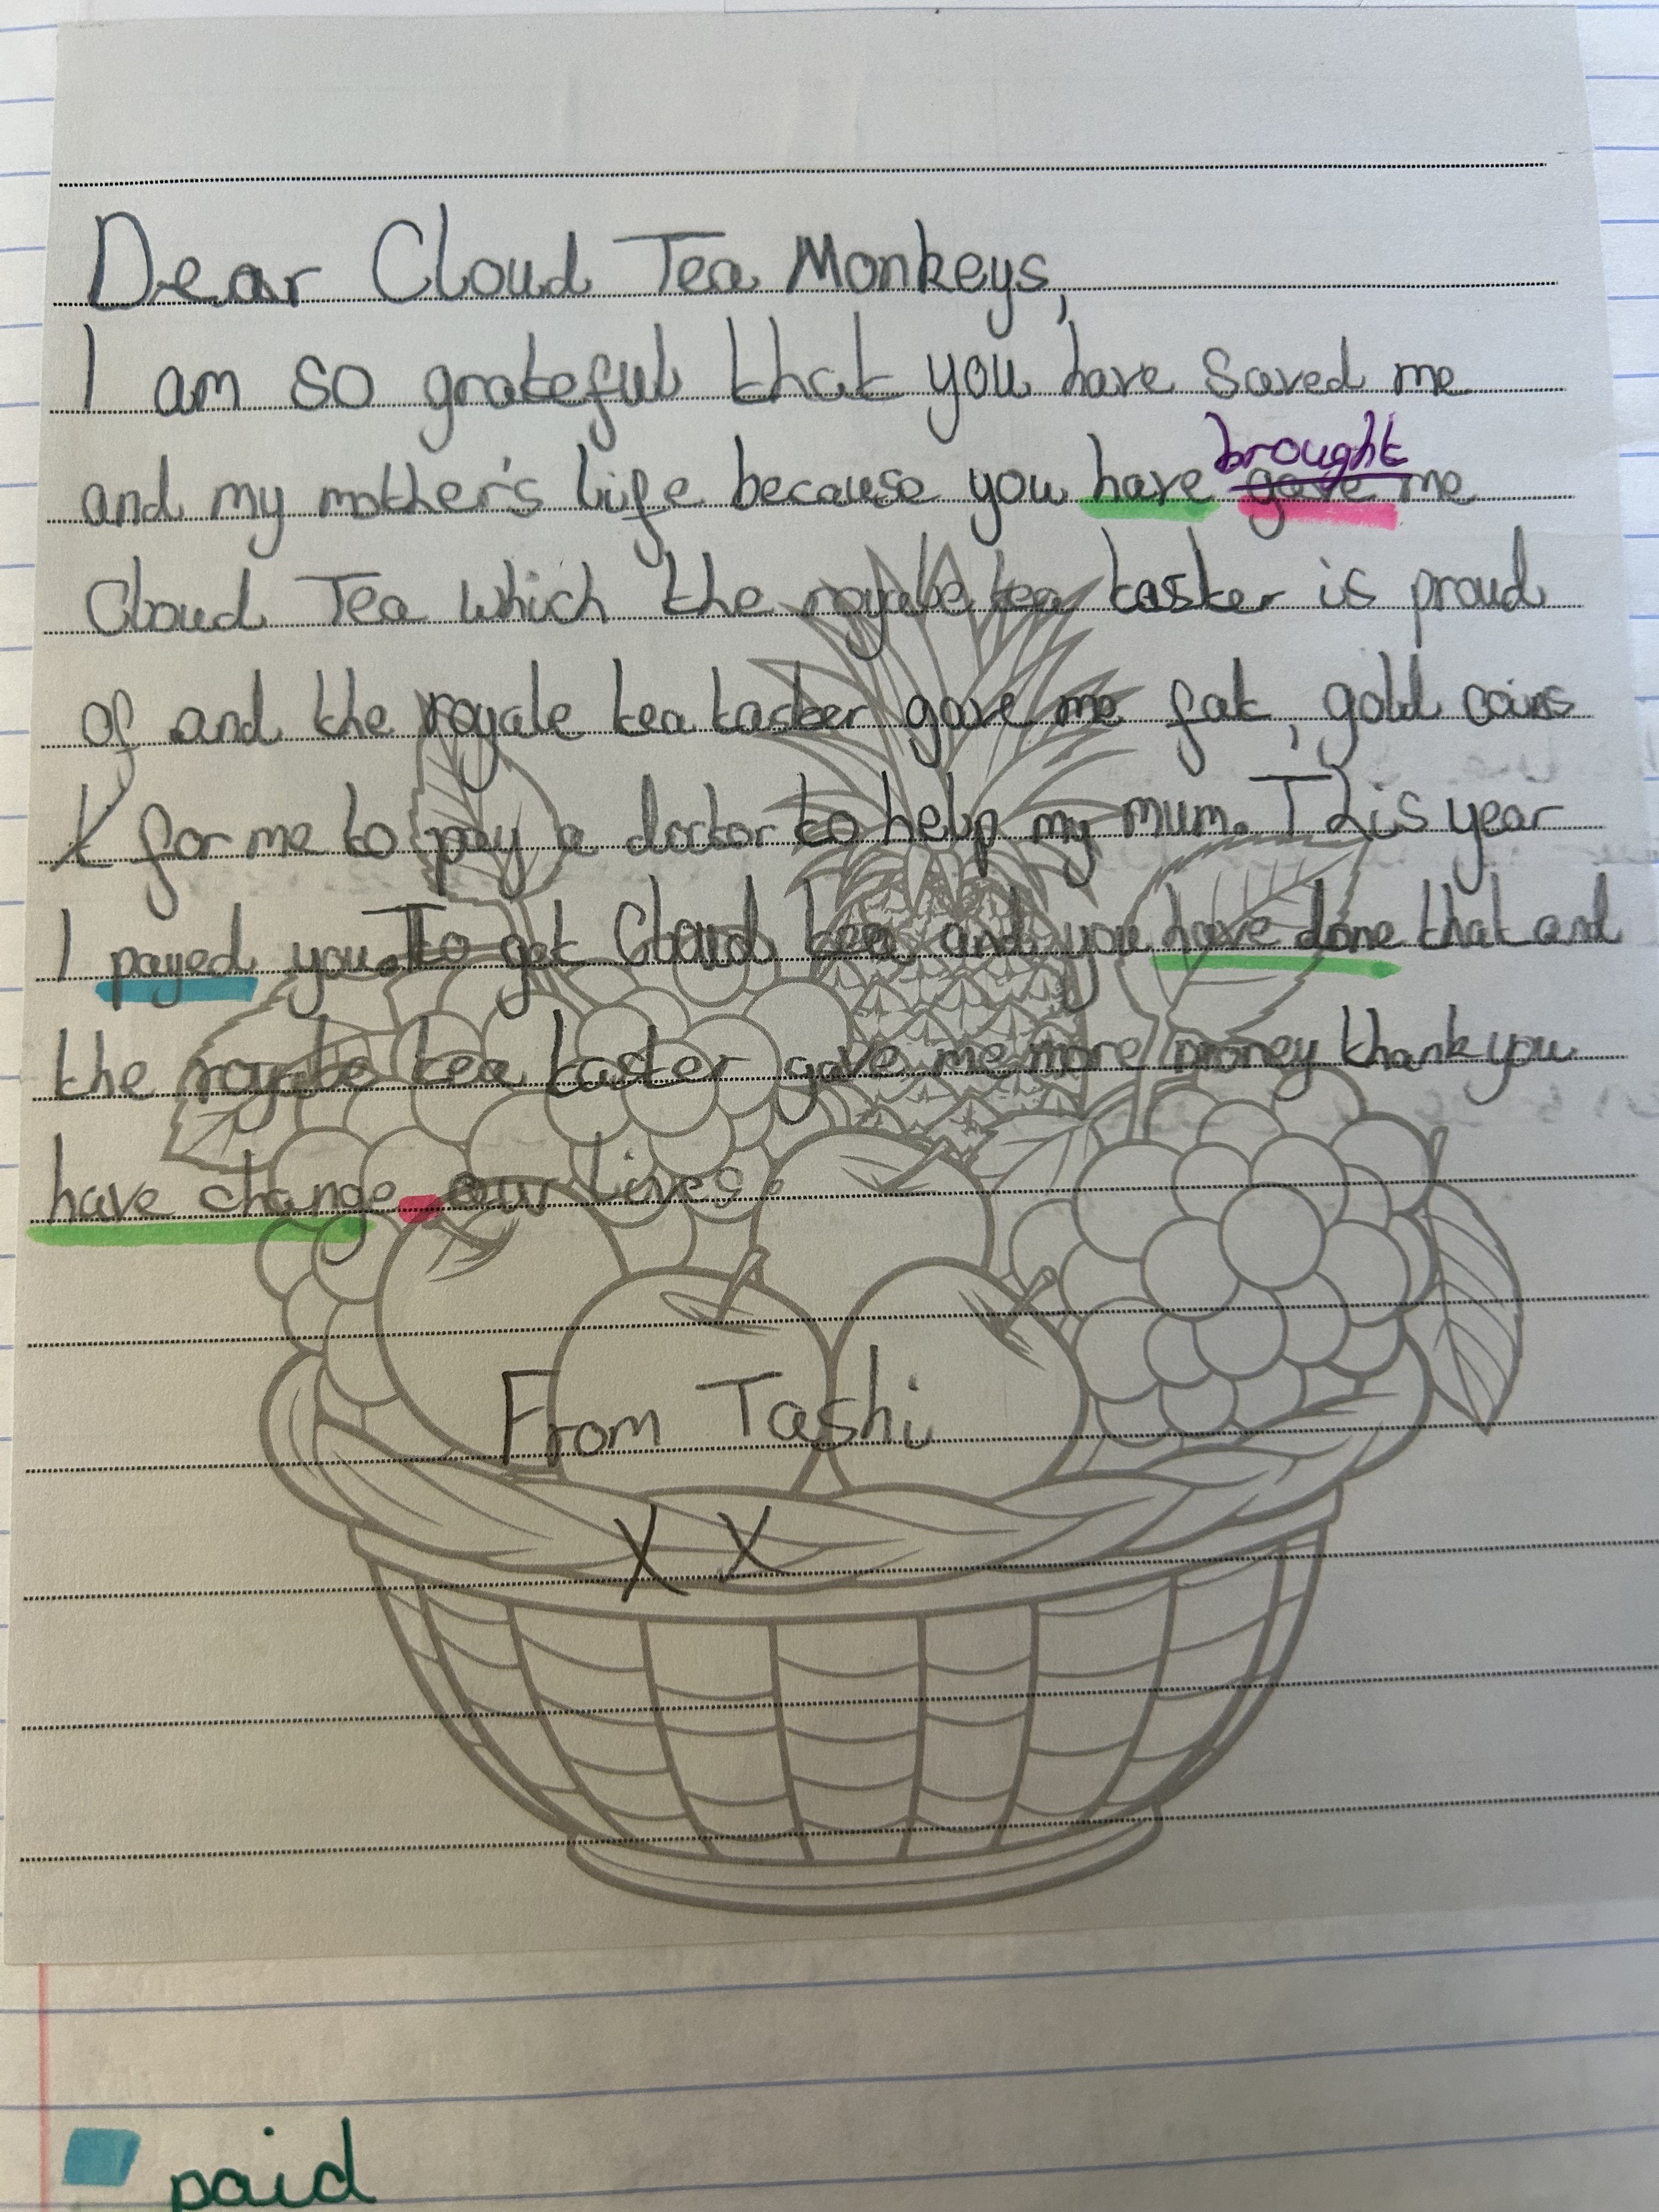 Dear Cloud Tea Monkeys,
I am so grateful that you have saved me
brought
and my mother's life because you have gave me
Cloud Tea which the royale tea taster is proud
of and the royale tea taster gave me fat, gold coins
for me to pay a doctor to help my mum. This year
I payed you to get Cloud tea and you have done that and
the royale tea taster gave me more money thank you
have change our lives.
From Tashi
X X
paid